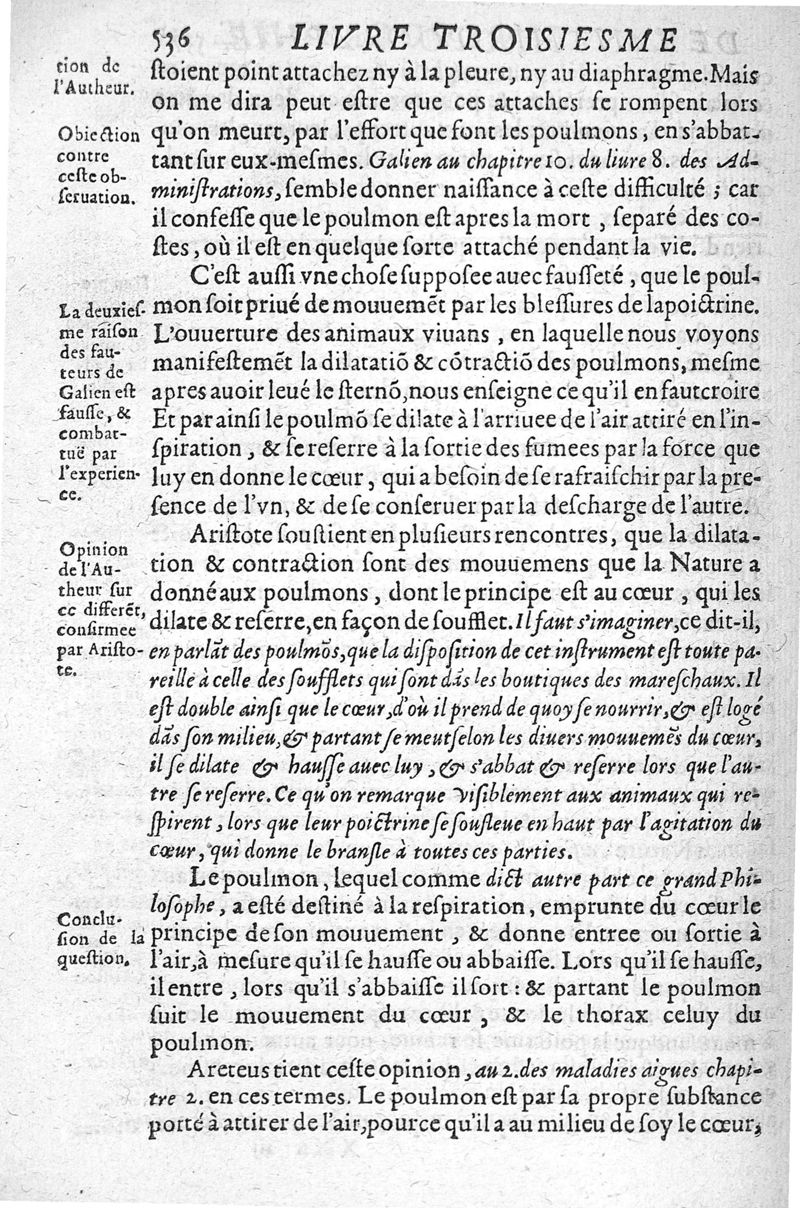 536 LIVRE TROISIESME
tion de
l'Autheur.
ſtoient point attachez ny à la pleure, ny au diaphragme. Mais
on me dira peut eſtre que ces attaches ſe rompent lors
Obiection
contre
ceſte ob-
ſeruation.
qu'on meurt, par l'effort que font les poulmons, en s'abbat-
tant ſur eux-meſmes. Galien au chapitre 10. du liure 8. des Ad-
miniſtrations, ſemble donner naiſſance à ceſte difficulté ; car
il confeſſe que le poulmon eſt apres la mort , ſeparé des co-
ſtes, où il eſt en quelque ſorte attaché pendant la vie.
C'eſt auſſi vne choſe ſuppoſee auec fauſſeté , que le poul-
La deuxieſ-
me raiſon
des fau-
teurs de
Galien eſt
fauſſe, &
combat-
tuë par
l'experien-
ce.
mon ſoit priué de mouuemẽt par les bleſſures de la poictrine.
L'ouuerture des animaux viuans , en laquelle nous voyons
manifeſtemẽt la dilatatiõ & cõtractiõ des poulmons, meſme
apres auoir leué le ſternõ, nous enſeigne ce qu'il en faut croire
Et par ainſi le poulmõ ſe dilate à l'arriuee de l'air attiré en l'in-
ſpiration , & ſe reſerre à la ſortie des fumees par la force que
luy en donne le cœur, qui a beſoin de ſe rafraiſchir par la pre-
ſence de l'vn, & de ſe conſeruer par la deſcharge de l'autre.
Ariſtote ſouſtient en pluſieurs rencontres, que la dilata-
Opinion
de l'Au-
theur ſur
ce differẽt,
confirmee
par Ariſto-
te.
tion & contraction ſont des mouuemens que la Nature a
donné aux poulmons, dont le principe eſt au cœur, qui les
dilate & reſerre, en façon de ſoufflet. Il faut s'imaginer, ce dit-il,
en parlãt des poulmõs, que la diſpoſition de cet inſtrument eſt toute pa-
reille à celle des ſoufflets qui ſont dãs les boutiques des mareſchaux. Il
eſt double ainſi que le cœur, d'où il prend de quoy ſe nourrir, & eſt logé
dãs ſon milieu, & partant ſe meut ſelon les diuers mouuemẽs du cœur,
il ſe dilate & hauſſe auec luy , & s'abbat & reſerre lors que l'au-
tre ſe reſerre. Ce qu'on remarque viſiblement aux animaux qui re-
ſpirent, lors que leur poictrine ſe ſouſleue en haut par l'agitation du
cœur, qui donne le branſle à toutes ces parties.
Le poulmon, lequel comme dict autre part ce grand Phi-
loſophe, a eſté deſtiné à la reſpiration, emprunte du cœur le
Conclu-
ſion de la
queſtion.
principe de ſon mouuement , & donne entree ou ſortie à
l'air, à meſure qu'il ſe hauſſe ou abbaiſſe. Lors qu'il ſe hauſſe,
il entre , lors qu'il s'abbaiſſe il ſort : & partant le poulmon
ſuit le mouuement du cœur , & le thorax celuy du
poulmon.
Areteus tient ceſte opinion, au 2. des maladies aigues chapi-
tre 2. en ces termes. Le poulmon eſt par ſa propre ſubſtance
porté à attirer de l'air, pource qu'il a au milieu de ſoy le cœur,